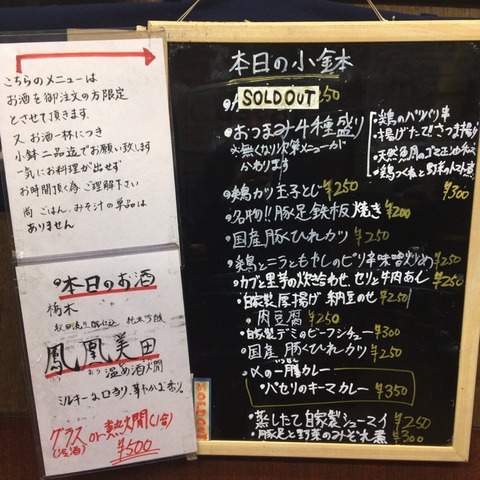 こちらのメニューは
お酒を御注文の方限定
とさせて頂きます。
又 お酒一杯につき
小鉢二品迄でお願い致します
一気にお料理が出せず
お時間頂く為 ご理解下さい
尚 ごはん、みそ汁の単品は
ありません
本日のお酒
栃木
鳳凰美田
温め酒燗
ミルキーな口当り、華やかな香り。
グラス or 熱燗(1合)
(冷酒)
¥500
本日の小鉢
SOLDOUT 250
おつまみ4種盛り
※無くなり次第メニューが
かわります
・鶏のパリパリ串
・揚げたて!さつま揚げ
・鶏つくねと野菜のトマト煮
¥300
鶏カツ玉子とじ ¥250
名物!!豚足鉄板焼き ¥200
国産豚ひれカツ ¥250
鶏とニラともやしのピリ辛味噌炒め ¥250
カブと里芋の炊き合わせ、セリと牛肉あん ¥250
自家製厚揚げ 納豆のせ ¥250
肉豆腐 ¥250
自家製デミのビーフシチュー ¥300
国産豚ひれカツ ¥250
〆の一膳カレー
・パセリのキーマカレー ¥350
蒸したて自家製シューマイ ¥250
・豚足と野菜のみぞれ煮 ¥300